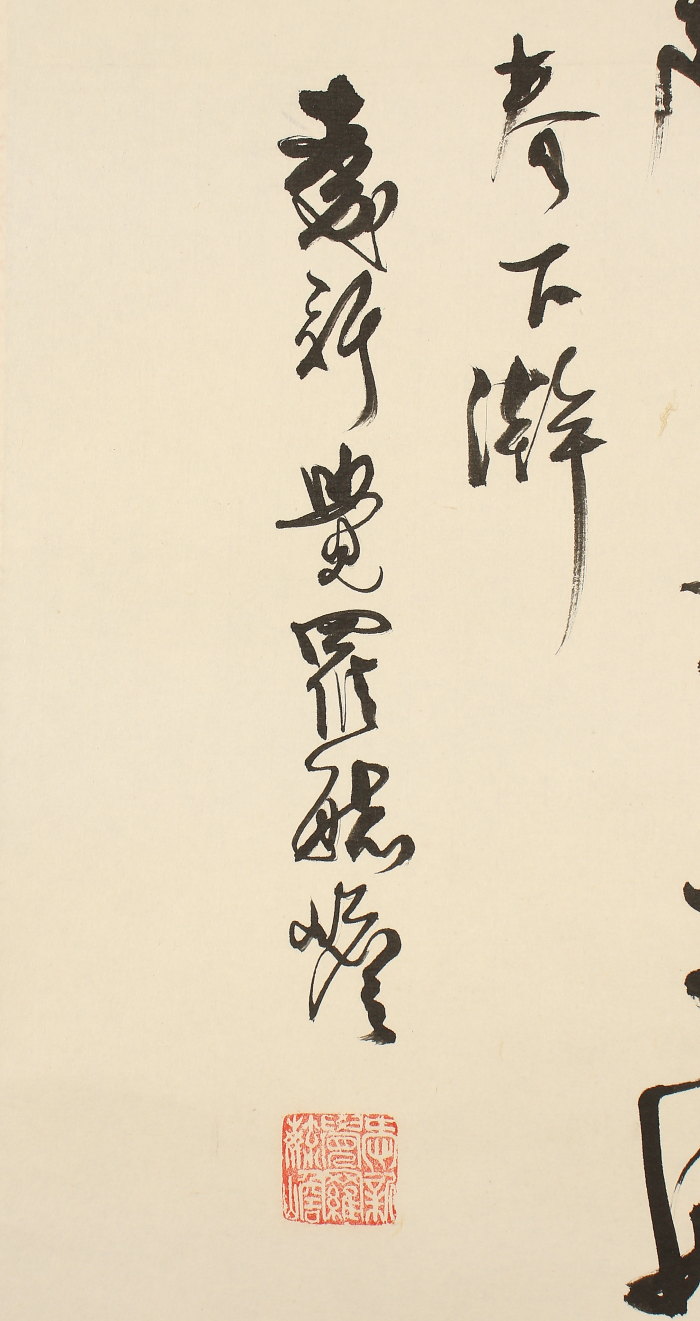 春下澣
愛新覺羅毓嶦
愛新覺羅毓嶦